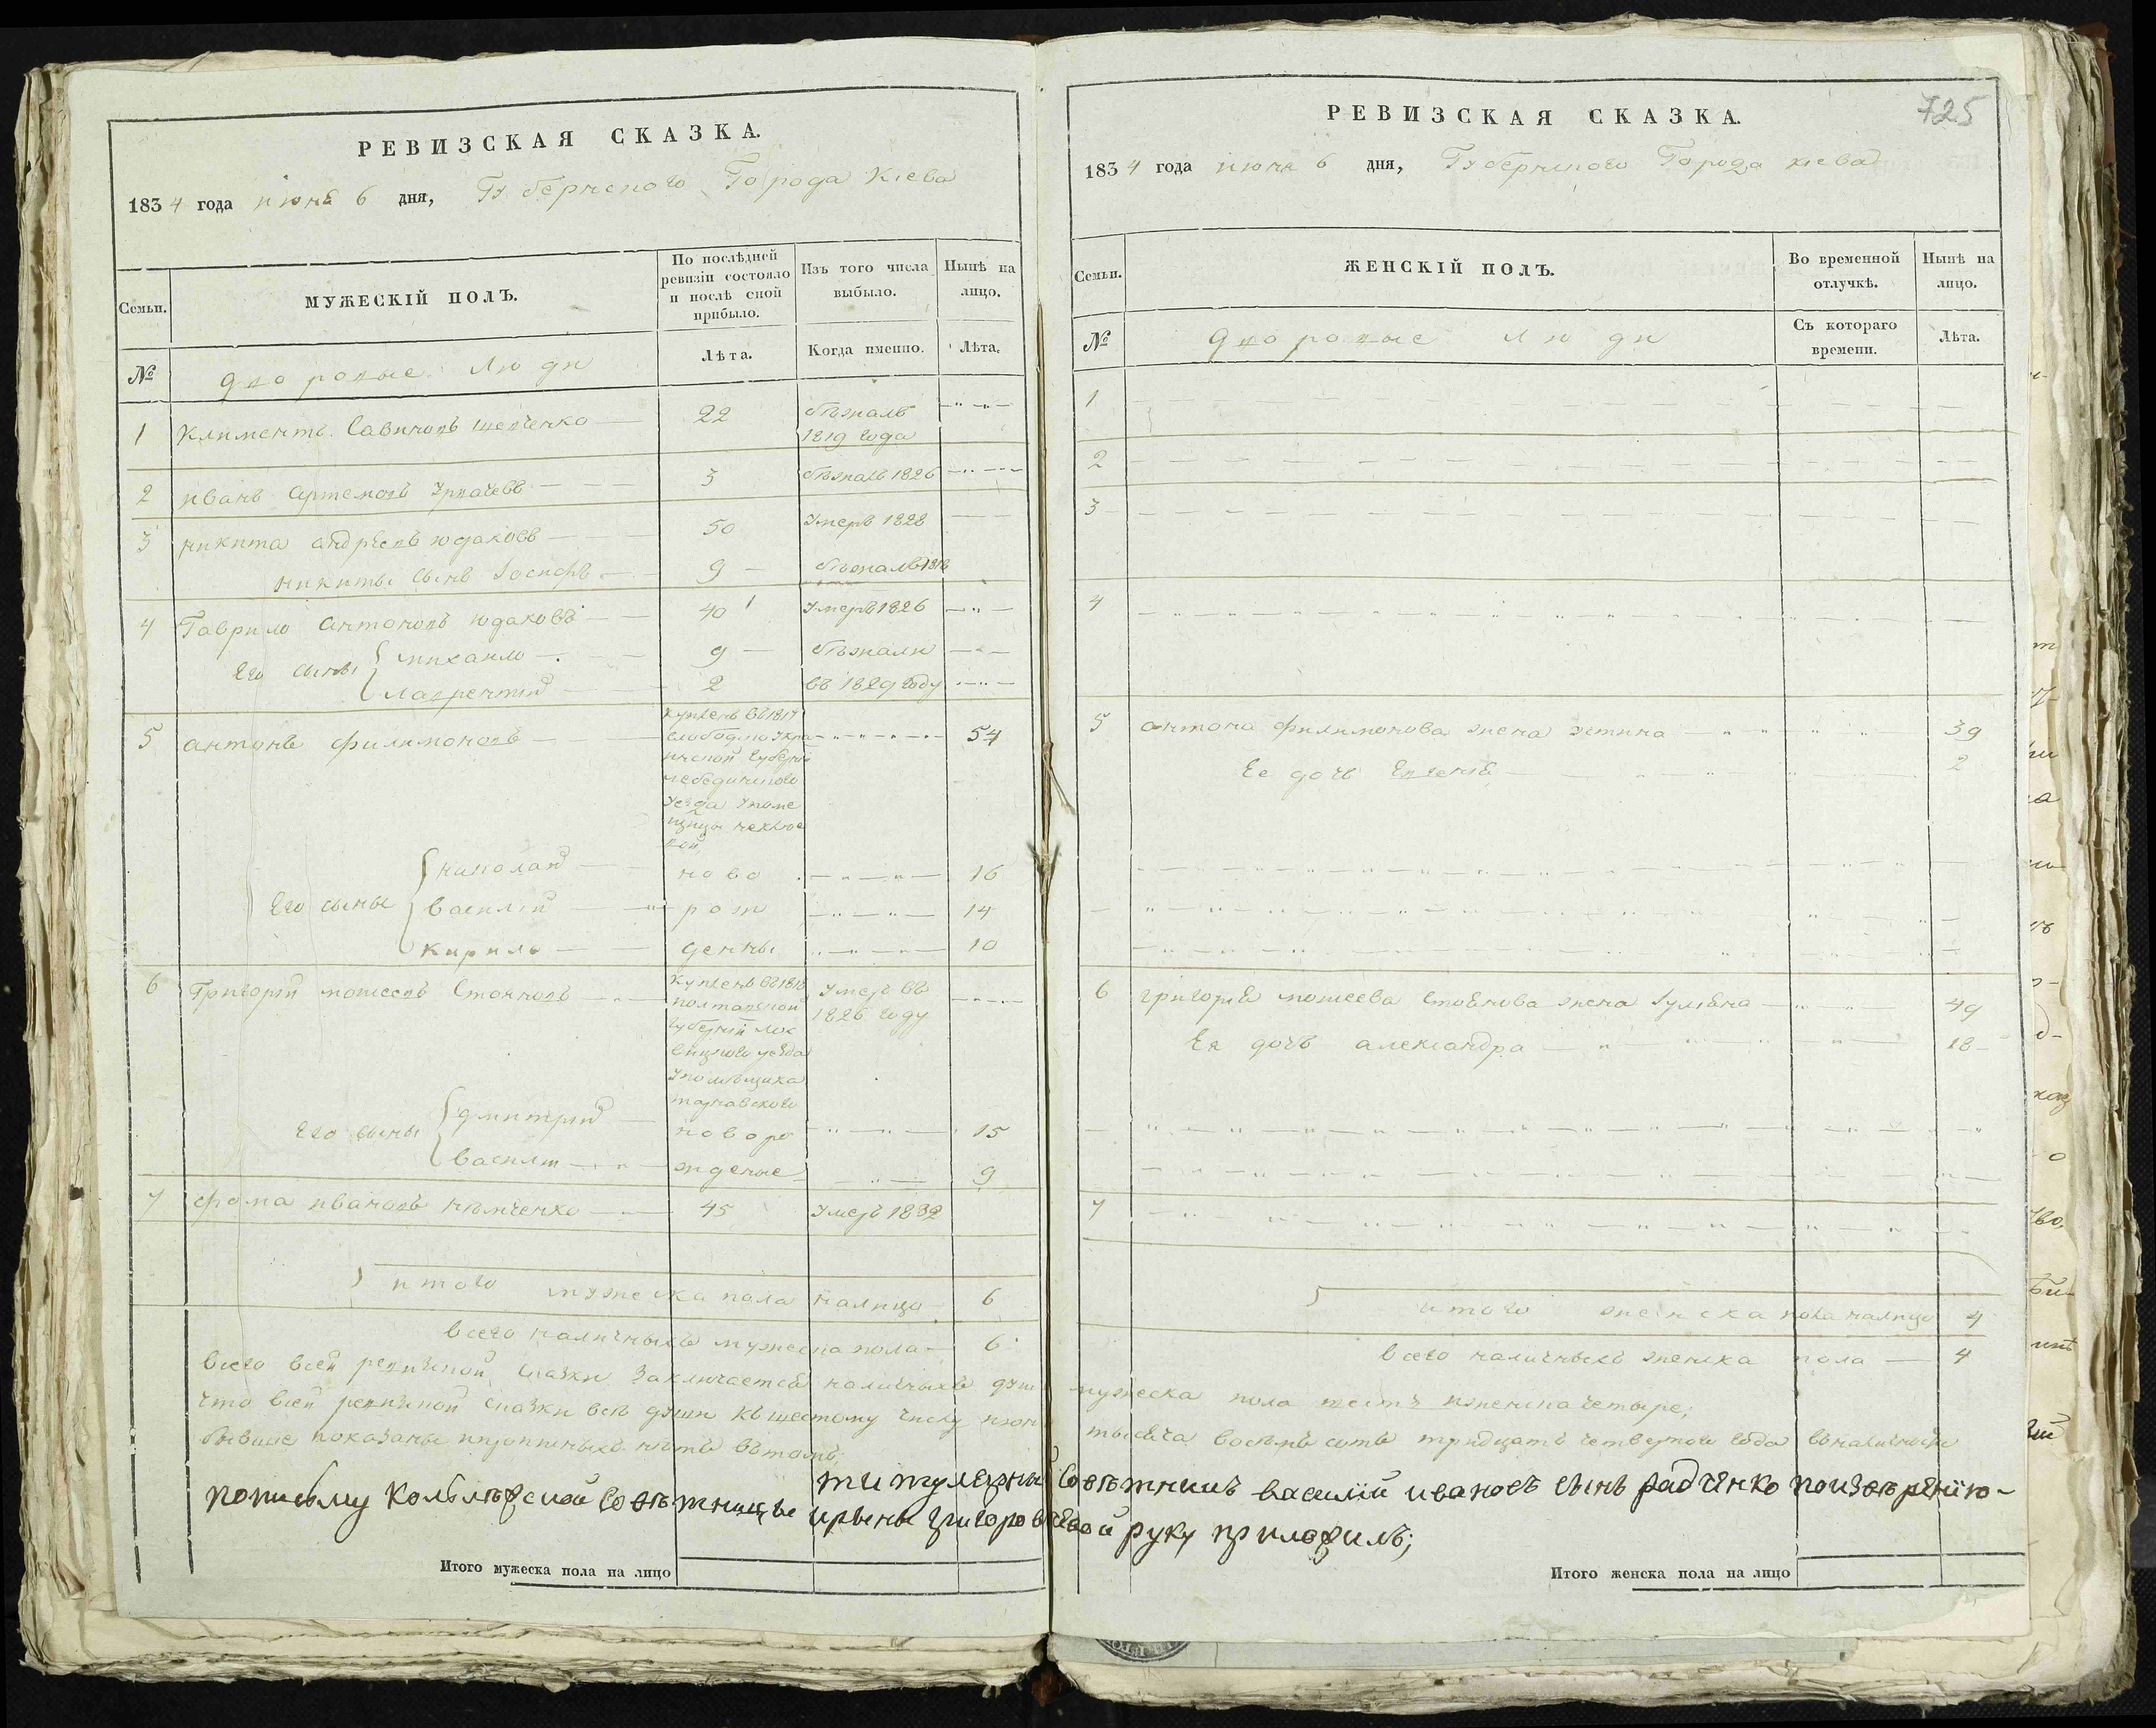 РЕВИЗСКАЯ СКАЗКА.
1834 года июня 6 дня, Губернского Города Киева
Семьи.
МУЖЕСКІЙ ПОЛЪ.
По послѣдней ревизіи состояло и послѣ сной прибыло.
Изъ того числа выбыло.
Нынѣ на лицо.
№
дворовые люди
Лѣта.
Когда именно.
Лѣта.
1 Климентъ Савиновъ Шевченко 22 бѣжалъ
1819 года
2 иванъ Артемовъ 3 бѣжалъ 1826
3 никита андрѣевъ юдаковъ 50 Умеръ 1828
никиты сынъ Іосифъ 9 бѣжалъ 1818
4 Гаврило Антоновъ юдаковъ 40 Умеръ 1826
Его сыны михаило 9 бѣжали
лаврентій 2 въ 1829 году
5 антонъ филимоновъ 54
купленъ въ 1817
слободно Укра
инской Губерніи
лебединского
уезда Упоме
щицы
николай ново 16
Его сыны василій рож 14
Кирило денны 10
6 Григорій мошеевъ Стоянновъ
Купленъ въ 1818
полтавской
Губерніи лох
вицкого уезда
Упомѣщика
Умеръ въ
1826 году
Его сыны дмитрій новоро 15
василій жденые 9
7 фома ивановъ нѣмченко 45 Умеръ 1832
итого мужеска пола налицо 6
всего наличныхъ мужеска пола 6
РЕВИЗСКАЯ СКАЗКА.
725
1834 года июня 6 дня, Губернского Города киева
Семьи.
ЖЕНСКІЙ ПОЛЪ.
Во временной отлучкѣ.
Нынѣ на лицо.
№
дворовые люди
Съ котораго времени.
Лѣта.
1
2
3
4
5 антона филимонова жена 39
Ее дочь Евгенія 2
6 григорія мошеева Стоянова жена Іуліяна 49
Ея дочь александра 18
7
итого женска пола налицо 4
всего наличныхъ женска пола 4
Всего всей ревизской сказки заключается наличныхъ душъ мужеска пола шесть иженска четыре;
что всей ревизской сказки всѣ души къ шестому числу июня тысяча восемь сотъ тридцать четвертого года въ наличности
бывшие показаны ипрописныхъ нѣтъ вътомъ,
титулярный Совѣтникъ василій ивановъ сынъ радченко
попизьму Совѣтницы ирины григоровичевой руку приложилъ;
Итого мужеска пола на лицо
Итого женска пола на лицо